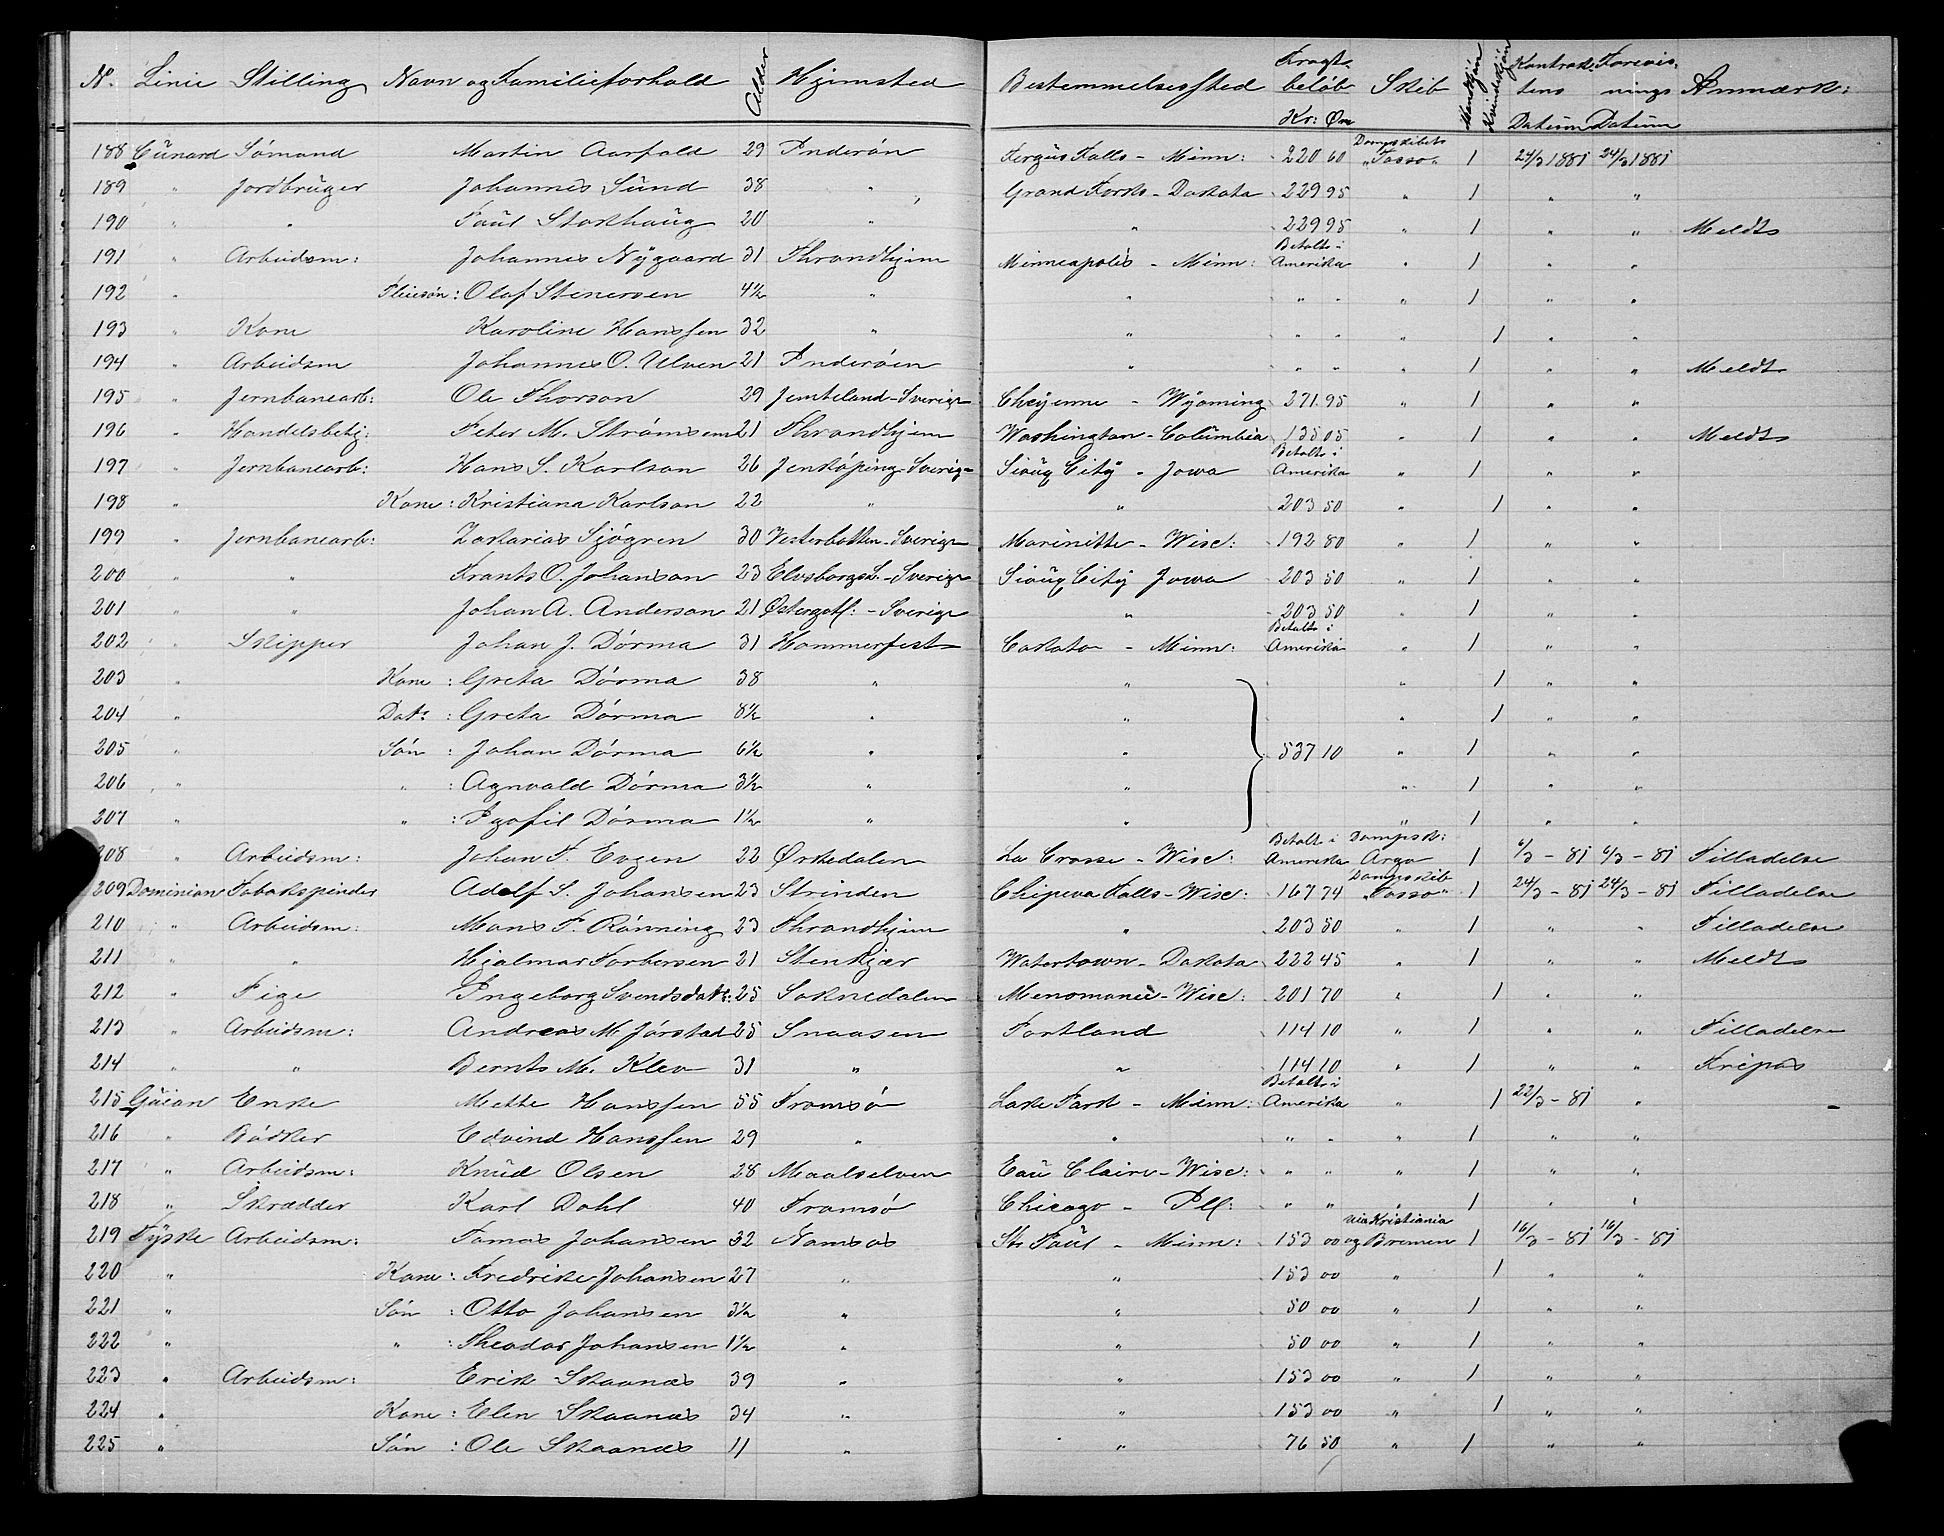 N. Linie Stilling Navn og Familieforhold Alder Hjemsted Bestemmelsessted Fragtbeløb Kr: Øre Skib Mandkjøn Kvindekjøn Kontraktens Datum Forevisnings Datum Anmærk:
188 Cunard Sømand Martin Aarfald 29 Inderøn Fergus Falls - Minn: 220 60 Dampskibets "Tasso" 1 24/3 1881 24/3 1881
189 " Jordbruger Johannes Sund 38 " Grand Forks - Dakota 229 95 " 1 " "
190 " " Paul Stokhaug 20 " " 229 95 " 1 " " Meldt
191 " Arbeidsm: Johannes Nygaard 31 Thrandhjem Minneapolis - Minn: Betalt i Amerika " 1 " "
192 " Pleiesøn: Olaf Stenersen 4½ " " " " " 1 " "
193 " Kone Karoline Hanssen 32 " " " " " 1 " "
194 " Arbeidsm Johannes O. Ulven 21 Inderøen " " " " 1 " " Meldt
195 " Jernbanearb: Ole Thorson 29 Jemteland - Sverige Cheyenne - Wyoming 271 95 " 1 " "
196 " Handelsbetj: Peter M. Strømsem 21 Thrandhjem Washington - Columbia 135 05 " 1 " " Meldt
197 " Jernbanearb: Hans S. Karlson 26 Jenkøping - Sverige Sioux City - Jowa Betalt i Amerika " 1 " "
198 " Kone: Kristiana Karlson 22 " " 203 50 " 1 " "
199 " Jernbanearb: Zakarias Sjøgren 30 Vesterbotten - Sverige Marinitte - Wisc: 192 80 " 1 " "
200 " " Frants O. Johanson 23 Elvsborgs L. - Sverige Sioux City Jowa 203 50 " 1 " "
201 " " Johan A. Anderson 21 Østergotl: - Sverige " 203 50 " 1 " "
202 " Skipper Johan J. Dørma 31 Hammerfest Cokato - Minn: Betalt i Amerika " 1 " "
203 " Kone: Greta Dørma 38 " " " 1 " "
204 " Datr: Greta Dørma 8½ " " " 1 " "
205 " Søn: Johan Dørma 6½ " " 537 10 " 1 " "
206 " ": Agnvald Dørma 3½ " " " 1 " "
207 " ": Igafil Dørma 1½ " " " 1 " "
208 " Arbeidsm: Johan F. Evgen 22 Ørkedalen La Crosse - Wisc: Betalt i Amerika Dampsk: Argo 1 6/3 - 81 6/3 - 81 Tilladelse
209 Dominian Tobakspinder Adolf S. Johansen 23 Strinden Chipeva Falls - Wisc: 167 74 Dampskib "Tasso" 1 24/3 - 81 24/3 - 81 Tilladelse
210 " Arbeidsm: Mons P. Rønning 23 Thrandhjem " 203 50 " 1 " " Tilladelse
211 " " Hjalmar Torbersen 21 Stenkjær Watertown - Dakota 222 45 " 1 " " Meldt
212 " Pige Ingeborg Svendsdatr: 25 Soknedalen Menomanie - Wisc: 201 70 " 1 " "
213 " Arbeidsm: Andreas M. Jørstad 25 Snaasen Portland 114 10 " 1 " " Tilladelse
214 " " Bernt M. Klev 31 " " 114 10 " 1 " " Fripas
215 Guian Enke Mette Hanssen 55 Tromsø Lake Park - Minn: Betalt i Amerika " 1 22/3 - 81 "
216 " Bødker Edvind Hanssen 29 " " " " " 1 " "
217 " Arbeidsm: Knud Olsen 28 Maalselven Eau Claire - Wisc: " " " 1 " "
218 " Skrædder Karl Dahl 40 Tromsø Chicago - Ill: " " " 1 " "
219 Tyske Arbeidsm: Tomas Johansen 32 Namsos St. Paul - Minn: 153 00 via Kristiania og Bremen 1 16/3 - 81 16/3 - 81
220 " Kone: Fredrike Johansen 27 " " 153 00 " 1 " "
221 " Søn: Otto Johansen 3½ " " 50 00 " 1 " "
222 " ": Theodor Johansen 1½ " " 50 00 " 1 " "
223 " Arbeidsm: Erik Skaanæs 39 " " 153 00 " 1 " "
224 " Kone: Elen Skaanæs 34 " " 153 00 " 1 " "
225 " Søn: Ole Skaanæs 11 " " 76 50 " 1 " "